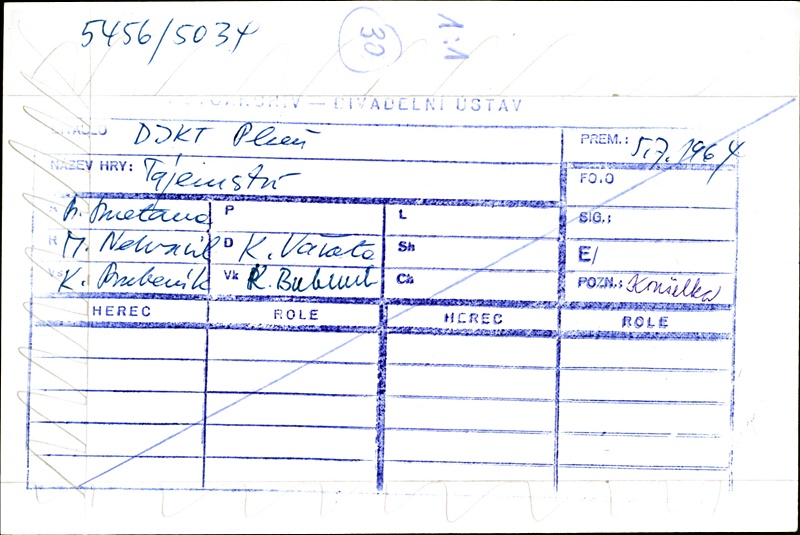 5456/5034
30
1:1
DIVADELNÍ ÚSTAV
DIVADLO DJKT Plzeň
PREM.: 5.7.1964
NÁZEV HRY: Tajemství
FOTO
B. Smetana P L SIG.:
R M. Nekvasil D K. Vašata Sh E/
K. Bubeník Vk K. Bubeník Ch POZN.: Konšelka
HEREC ROLE HEREC ROLE